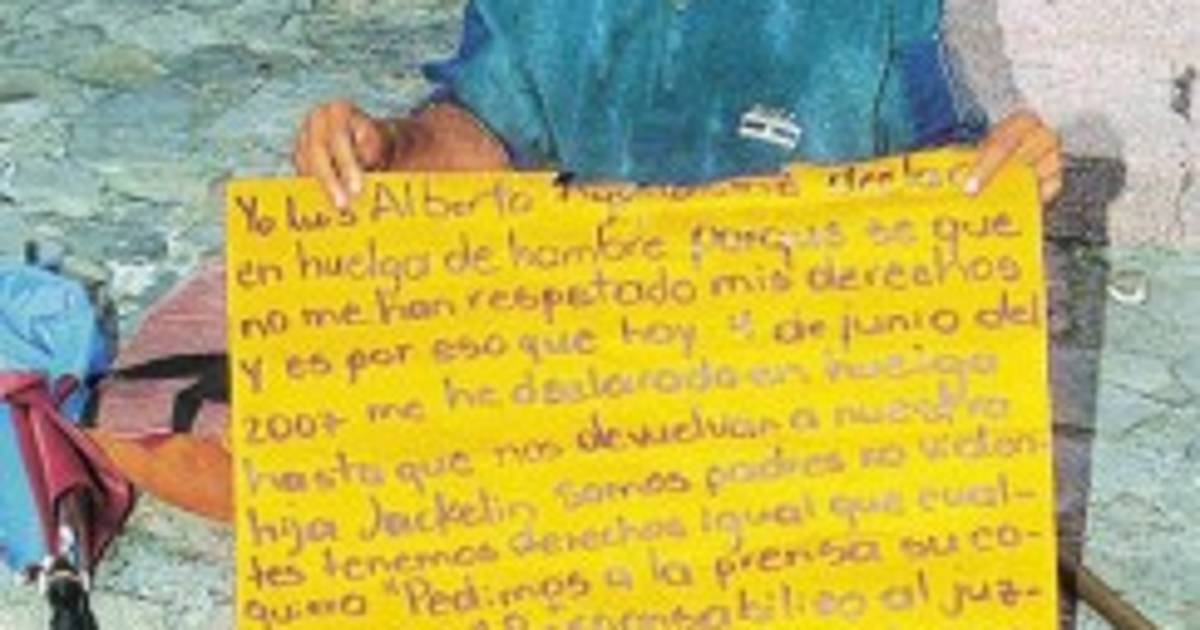 Yo Luis Alberto declaro
en huelga de hambre porque se que
no me han respetado mis derechos
y es por eso que hoy 4 de junio del
2007 me he declarado en huelga
hasta que nos devuelvan a nuestra
hija Jackelin somos padres no viden-
tes tenemos derechos igual que cual-
quiera "Pedimos a la prensa su co-
Responsabilizo al juz-